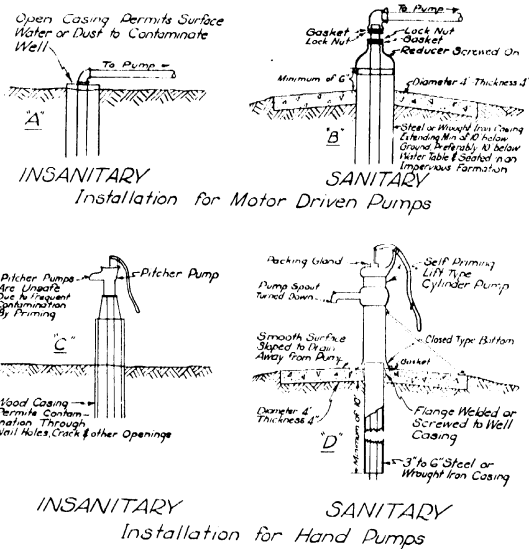 Open Casing Permits Surface
Water or Dust to Contaminate
Well
To Pump
"A"
INSANITARY
To Pump
Gasket
Lock Nut
Lock Nut
Gasket
Reducer Screwed On
Minimum of 6"
Diameter 4' - Thickness 4"
"B"
Steel or Wrought Iron Casing
Extending Min of 10' below
Ground, Preferably 10' below
Water Table & Seated in an
Impervious Formation
SANITARY
Installation for Motor Driven Pumps
Pitcher Pumps
Are Unsafe
Due to Frequent
Contamination
By Priming
Pitcher Pump
"C"
Wood Casing
Permits Contam-
nation Through
Nail Holes, Crack & other Openings
INSANITARY
Packing Gland
Self Priming
Lift Type
Cylinder Pump
Pump Spout
Turned Down
Smooth Surface
Sloped to Drain
Away from Pump
Closed Type Bottom
Gasket
Diameter 4'
Thickness 4"
"D"
Minimum of 10'
Flange Welded or
Screwed to Well
Casing
3" to 6" Steel or
Wrought Iron Casing
SANITARY
Installation for Hand Pumps